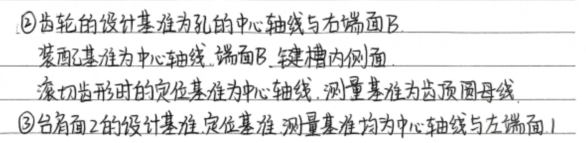 ②齿轮的设计基准为孔的中心轴线与右端面B.
装配基准为中心轴线.端面B.键槽内侧面
滚切齿形时的定位基准为中心轴线.测量基准为齿顶圆母线
③台肩面2的设计基准.定位基准.测量基准均为中心轴线与左端面1